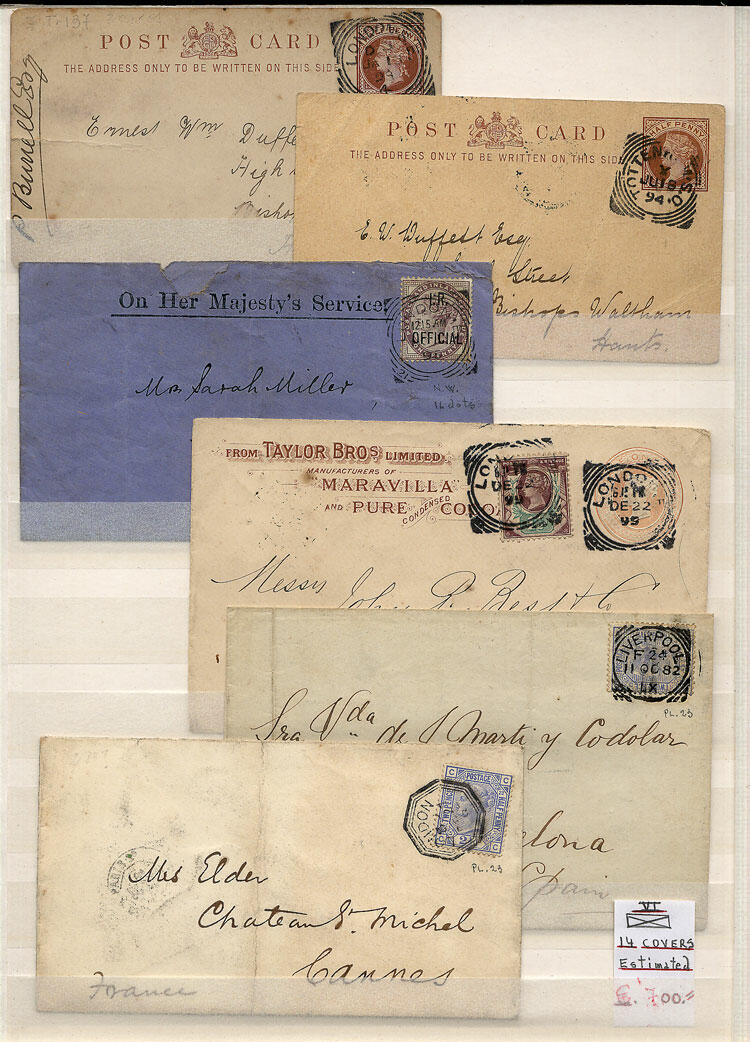 Tr. 197
POST CARD
THE ADDRESS ONLY TO BE WRITTEN ON THIS SIDE
Ernest Wm Duffe
High
Bishop
P Burnell Esq
POST CARD
HALF PENNY
THE ADDRESS ONLY TO BE WRITTEN ON THIS SID
TOTTEN
JU 18
94
E. W. Duffett Esq
Street
Bishops Waltham
Hants.
On Her Majesty's Service
I.R.
OFFICIAL
12 15 AM
Mrs Sarah Miller
N.W.
14 dots
FROM TAYLOR BROS LIMITED
MANUFACTURERS OF
"MARAVILLA"
AND PURE CONDENSED COCOA
LONDON
DE 22
99
LONDON
DE 22
99
Messrs John R. Best & Co
LIVERPOOL
F 24
11 OC 82
LX
PL. 23
Sra Vda de J Marti y Codolar
elona
Spain
POSTAGE
C C
PL. 23
Mrs Elder
Chateau St Michel
Cannes
France
VI
14 COVERS
Estimated
00.=